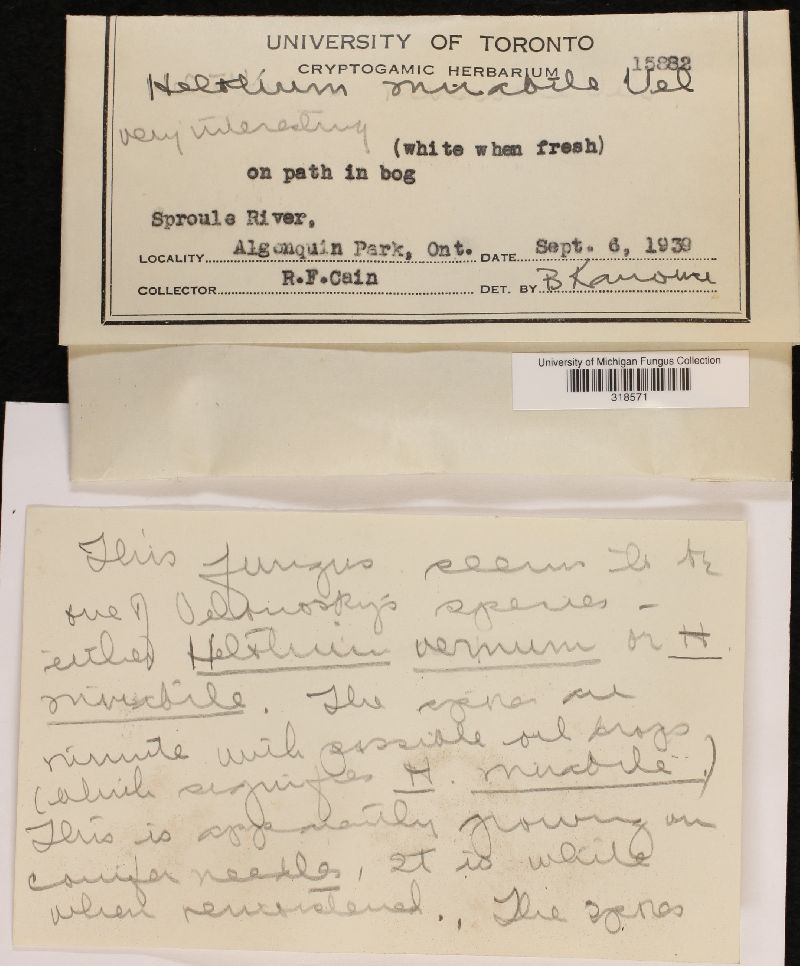 UNIVERSITY OF TORONTO
CRYPTOGAMIC HERBARIUM 15882
Helotium mirabile Vel
very interesting
(white when fresh)
on path in bog
Sproule River,
LOCALITY Algonquin Park, Ont. DATE Sept. 6, 1939
COLLECTOR R.F.Cain DET. BY B Kanouse
University of Michigan Fungus Collection
318571
This fungus seems to be
one of Velenosky's species -
either Helotium vernum or H.
mirabile. The spores are
minute with possible oil drops
(which signifies H. mirabile.)
This is apparently growing on
conifer needles, It is white
when remoistened., The spores